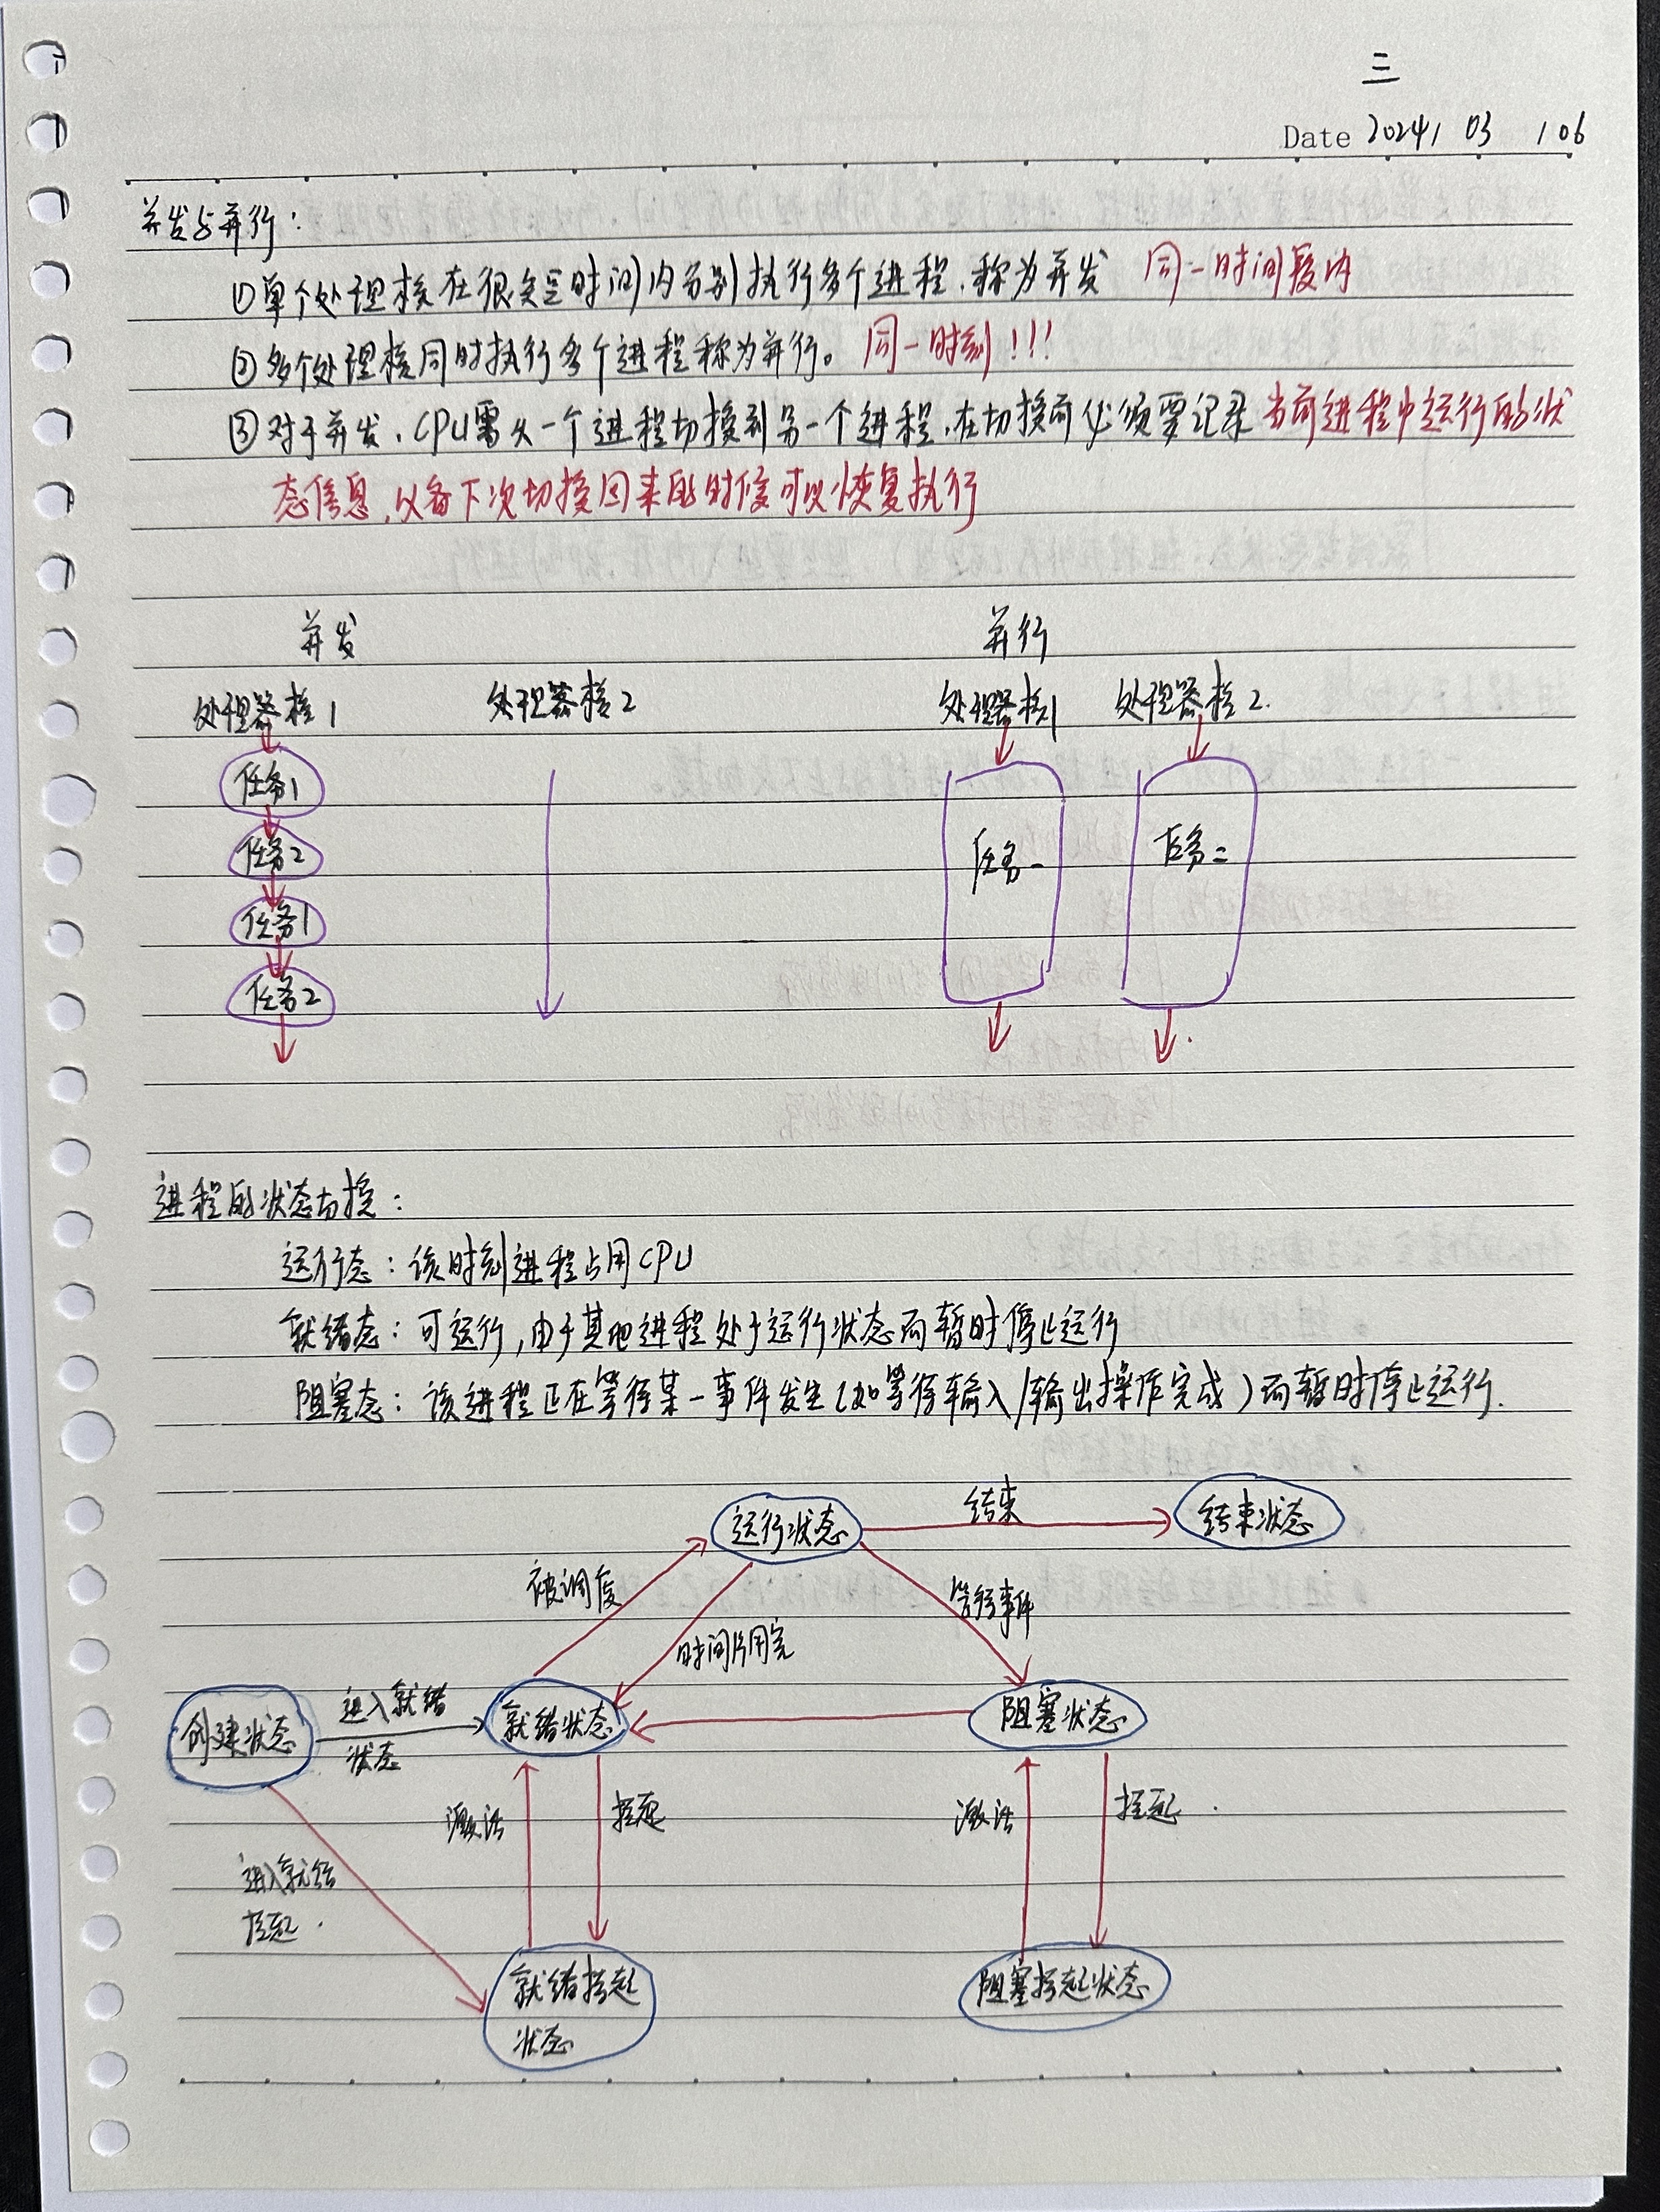 三
Date 2024 / 03 / 06
并发与并行：
①单个处理核在很短时间内分别执行多个进程，称为并发 同一时间段内
②多个处理核同时执行多个进程称为并行。同一时刻！！！
③对于并发，CPU需从一个进程切换到另一个进程，在切换前必须要记录当前进程中运行的状
态信息，以备下次切换回来的时候可以恢复执行
并发 并行
处理器核1 处理器核2 处理器核1 处理器核2.
任务1
任务2 任务一 任务二
任务1
任务2
进程的状态切换：
运行态：该时刻进程占用CPU
就绪态：可运行，由于其他进程处于运行状态而暂时停止运行
阻塞态：该进程正在等待某一事件发生（如等待输入/输出操作完成）而暂时停止运行.
运行状态 结束 结束状态
被调度 等待事件
时间片用完
创建状态 进入就绪 就绪状态 阻塞状态
状态
激活 挂起 激活 挂起
进入就绪
挂起
就绪挂起 阻塞挂起状态
状态